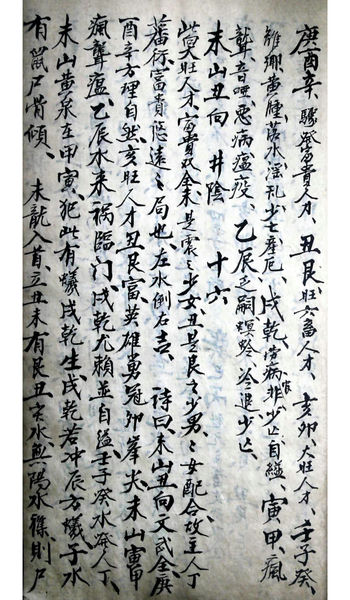 庚酉辛、驟發富貴人才、丑艮、旺六畜人才、亥卯、大旺人才、壬子癸、
離鄉黃腫、苦水淫乱少亡產厄、戌乾、官病非少亡自縊、寅甲、瘋
聾音啞惡病瘟疫、乙辰、乏嗣螟蛉冷退少亡、
未山丑向 井陰 十六
此穴旺人才富貴双全未是震之少女丑是艮之少男之女配合故主人丁
蕃衍富貴悠遠之局也左水倒右吉、 詩曰、未山丑向文武全庚
酉辛方理自然、亥旺人才丑艮富、英雄勇冠卯峯尖、未山寅甲
瘋聾瘟、乙辰水来禍臨门、戌乾尤賴並自縊、壬子癸水發人丁、
未山黃泉在甲寅、犯此有蟻戌乾生、戌乾若冲辰方蟻、子水
有鼠尸骨傾、 未龍入首、立丑未有艮丑亥水無陽水雜則尸